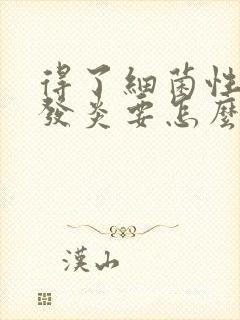 得了細菌性
發炎要怎麼
漢山